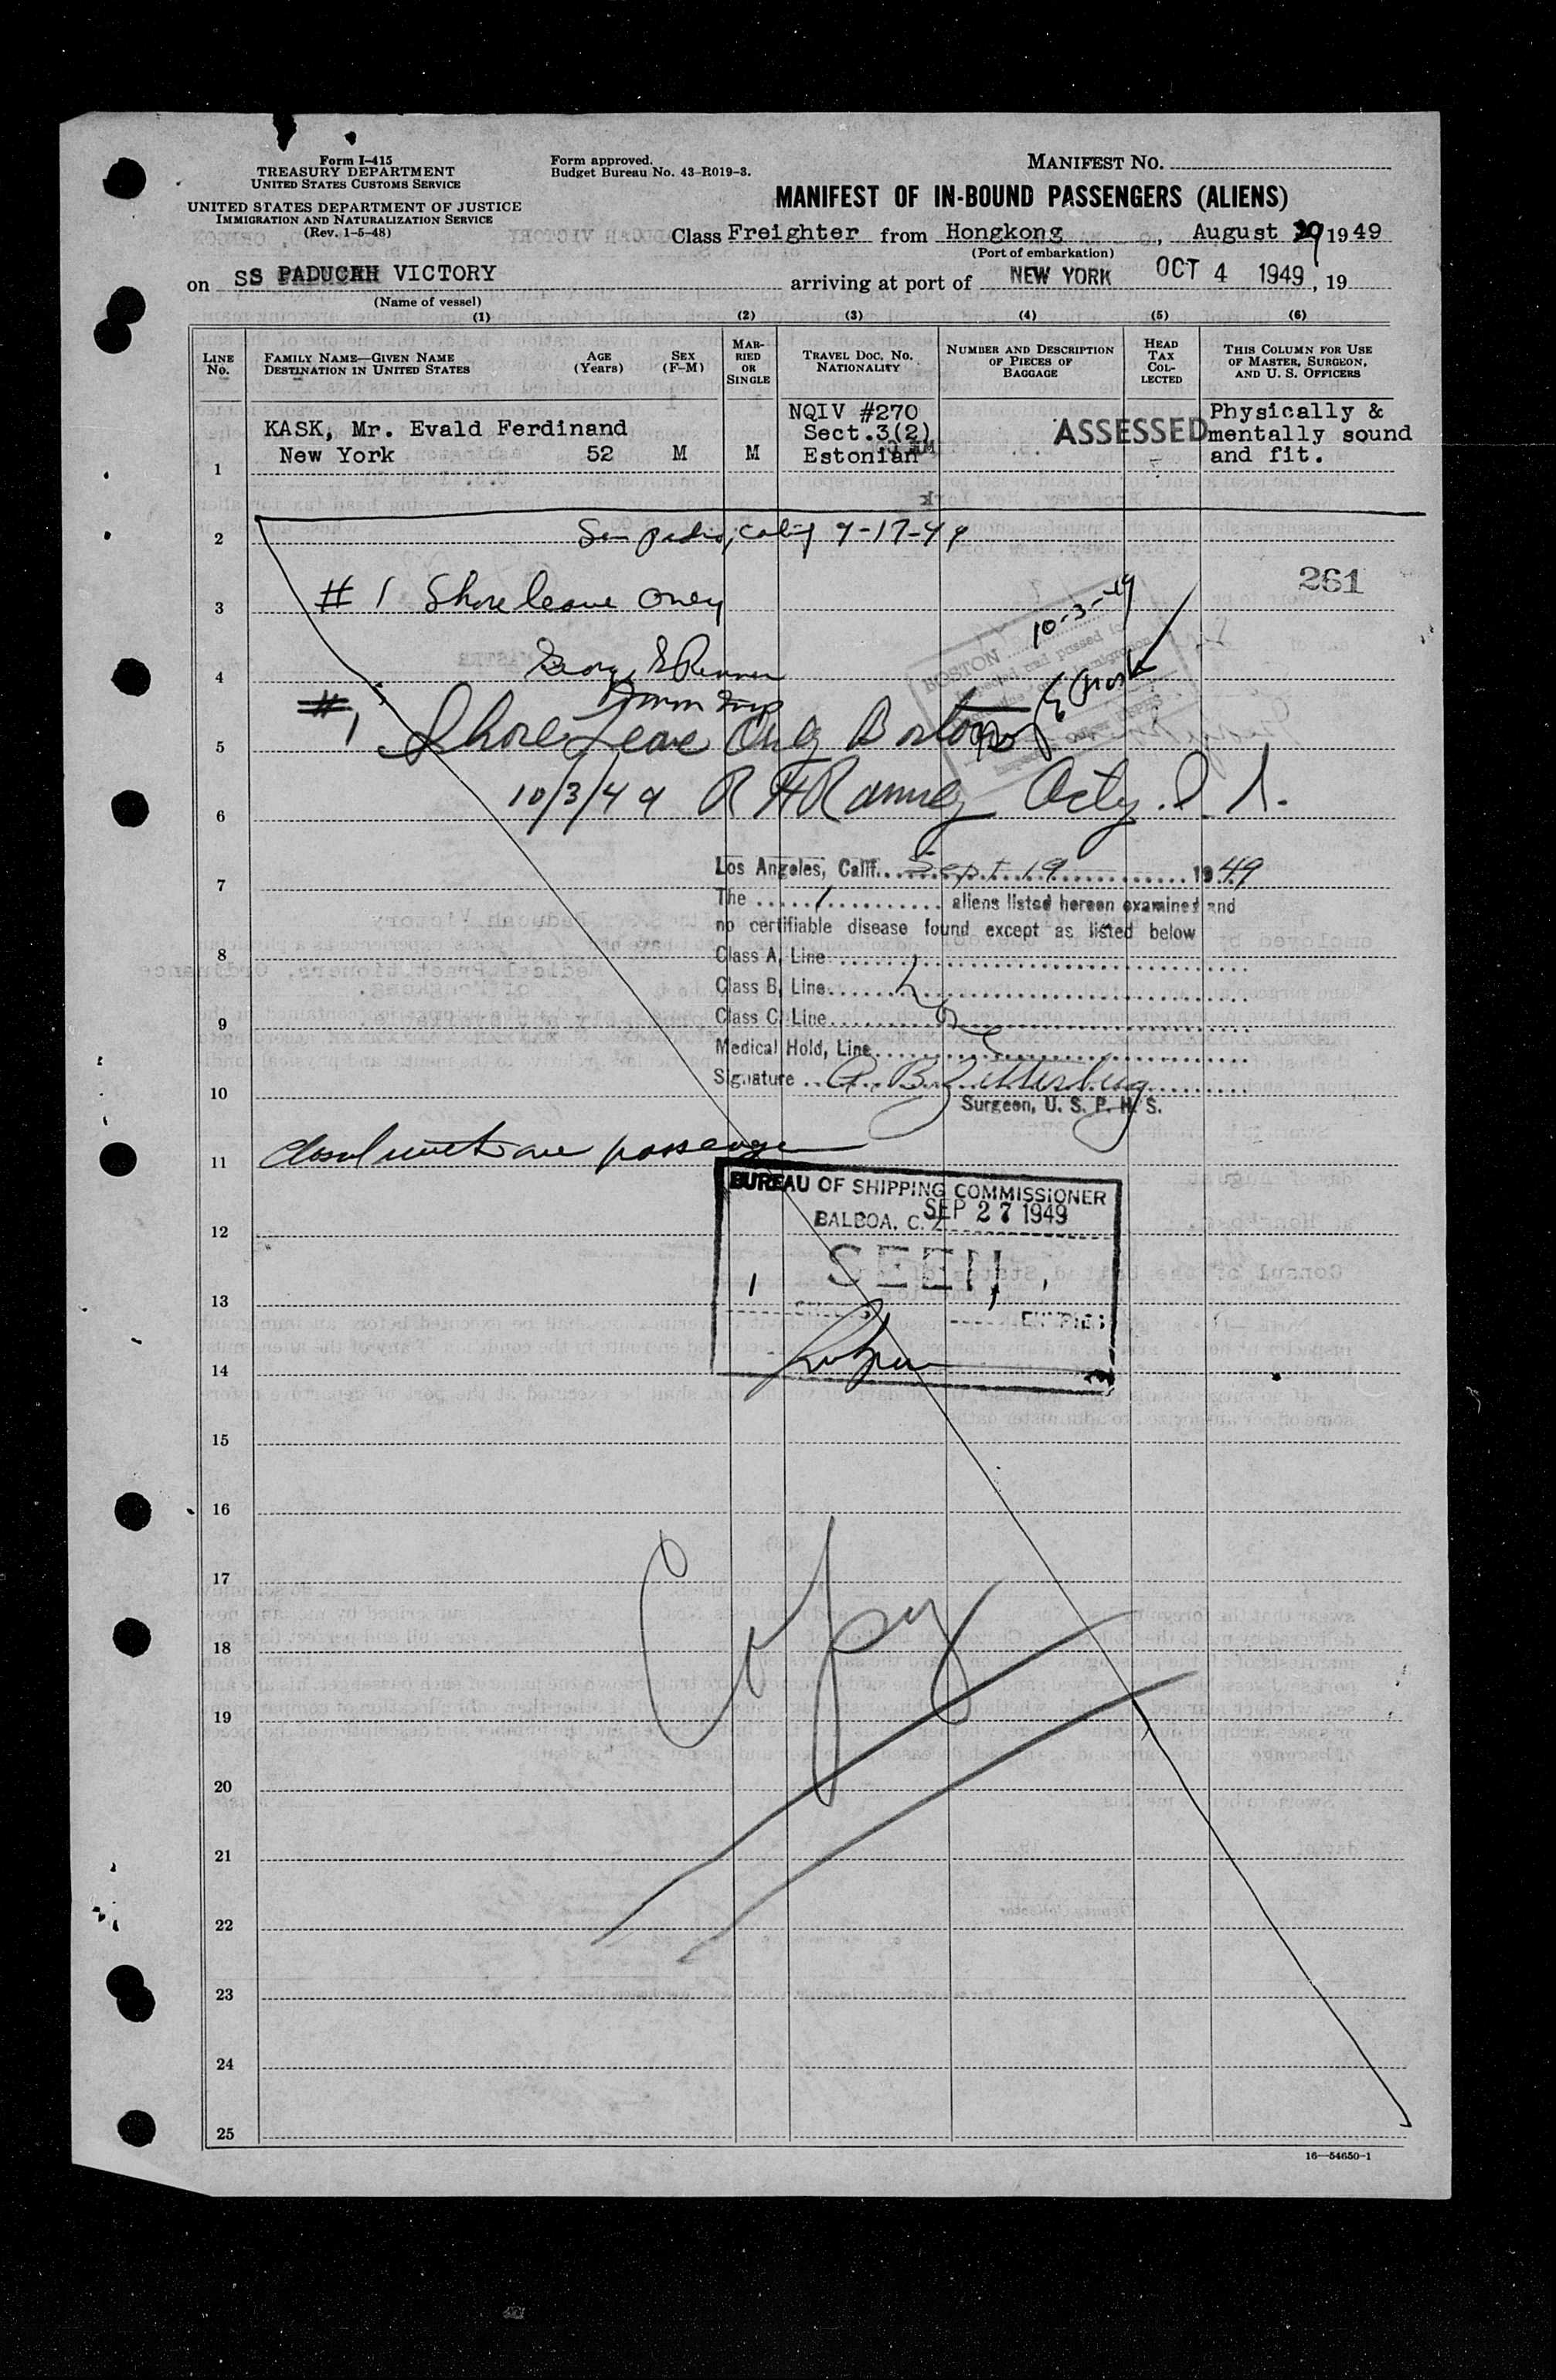 Form I-415
TREASURY DEPARTMENT
UNITED STATES CUSTOMS SERVICE
UNITED STATES DEPARTMENT OF JUSTICE
IMMIGRATION AND NATURALIZATION SERVICE
(Rev. 1-5-48)
Form approved.
Budget Bureau No. 43-R019-3.
MANIFEST NO.
MANIFEST OF IN-BOUND PASSENGERS (ALIENS)
Class Freighter from Hongkong, August 1949
(Port of embarkation)
on SS PADUCAH VICTORY arriving at port of NEW YORK OCT 4 1949, 19
(Name of vessel)
(1) (2) (3) (4) (5) (6)
LINE No.
FAMILY NAME—GIVEN NAME
DESTINATION IN UNITED STATES
AGE (Years)
SEX (F-M)
MARRIED OR SINGLE
TRAVEL DOC. No. NATIONALITY
NUMBER AND DESCRIPTION OF PIECES OF BAGGAGE
HEAD TAX COLLECTED
THIS COLUMN FOR USE OF MASTER, SURGEON, AND U. S. OFFICERS
NQIV #270 Physically &
KASK, Mr. Evald Ferdinand Sect.3(2) ASSESSED mentally sound
New York 52 M M Estonian and fit.
1
2 San Pedro, Calif 9-17-49
261
3 # 1 Shore leave only
BOSTON 10-3-49
4
5 # 1 Shore Leave Only Boston
6 10/3/49
Los Angeles, Calif. Sept 19 1949
7
The 1 aliens listed hereon examined and
no certifiable disease found except as listed below
8 Class A, Line
Class B, Line
9 Class C, Line
Medical Hold, Line
Signature
10 Surgeon, U. S. P. H. S.
11 Closed with one passenger
BUREAU OF SHIPPING COMMISSIONER
BALBOA, C. Z. SEP 27 1949
12
SEEN
13
14
15
16
17
Copy
18
19
20
21
22
23
24
25
16—54650-1